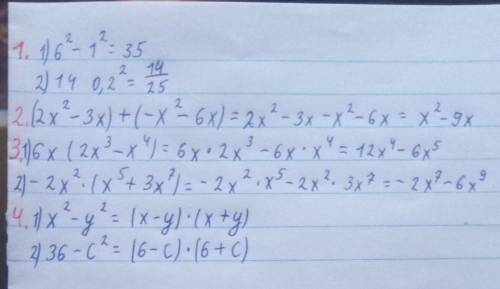 1. 1) 6² - 1² = 35
2) 14 0,2² = 14/25
2. (2x² - 3x) + (-x² - 6x) = 2x² - 3x - x² - 6x = x² - 9x
3. 1) 6x (2x³ - x⁴) = 6x · 2x³ - 6x · x⁴ = 12x⁴ - 6x⁵
2) - 2x² · (x⁵ + 3x⁷) = - 2x² · x⁵ - 2x² · 3x⁷ = - 2x⁷ - 6x⁹
4. 1) x² - y² = (x - y) · (x + y)
2) 36 - c² = (6 - c) · (6 + c)